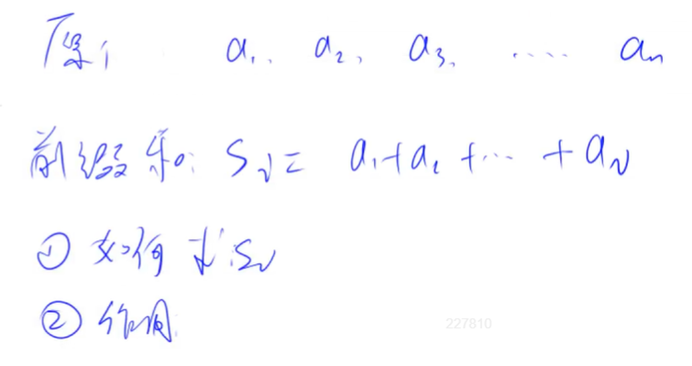 原: a₁, a₂, a₃, ..... aₙ
前缀和: Sᵢ = a₁+a₂+...+aᵢ
① 如何求Sᵢ
② 作用
227810